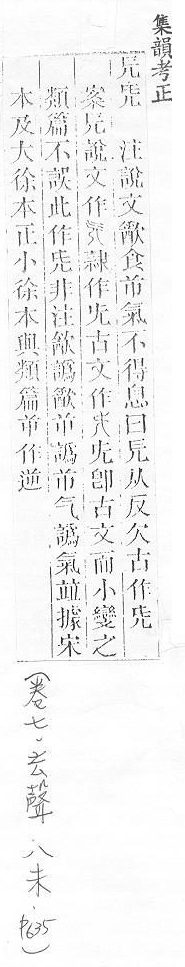 集韻考正
旡兂 注說文歠食屰氣不得息曰旡从反欠古作兂
案旡說文作隸作旡古文作旡即古文而小變之
類篇不誤此作兂非注歠譌歠屰譌屰气譌氣竝據宋
本及大徐本正小徐本與類篇屰作逆
(卷七.去聲.八未.P635)